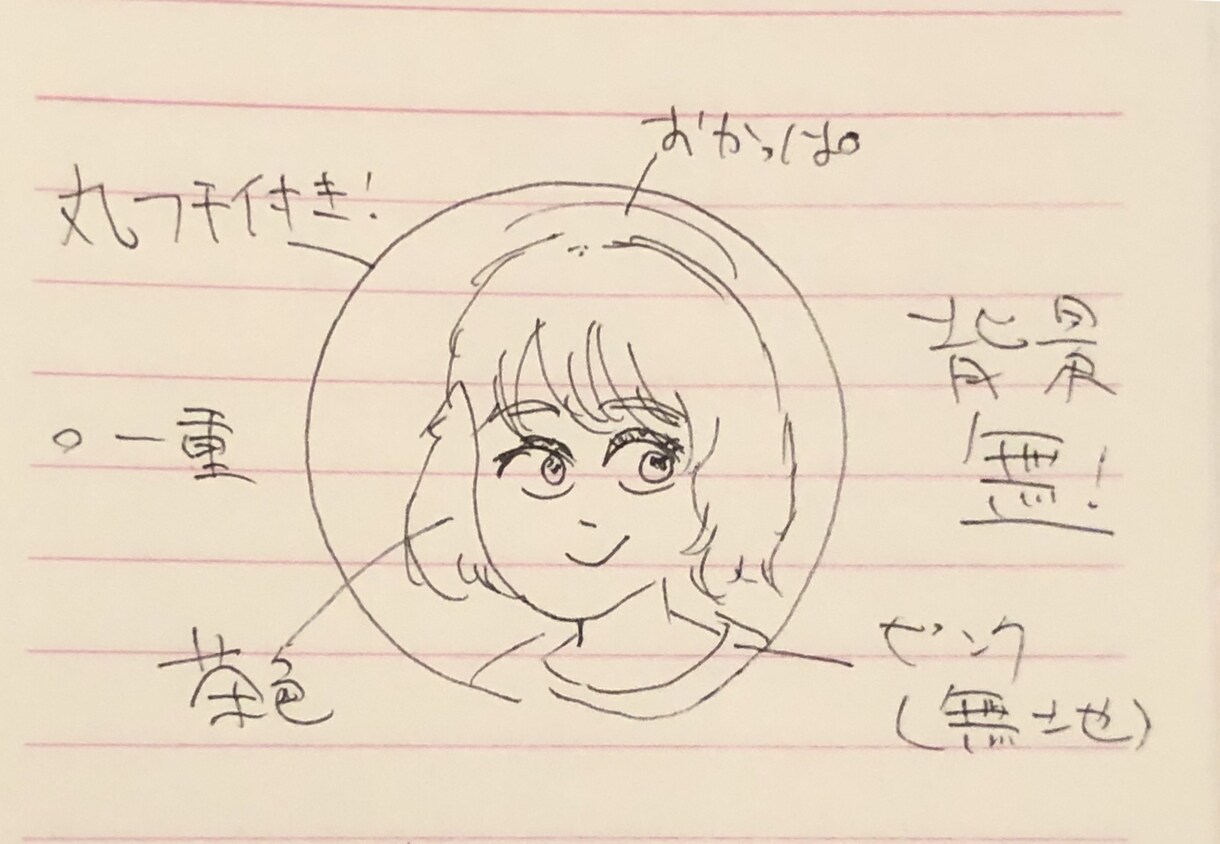 おかっぱ
丸フチ付き!
背景
無!
○一重
茶色
ピンク
(無地)